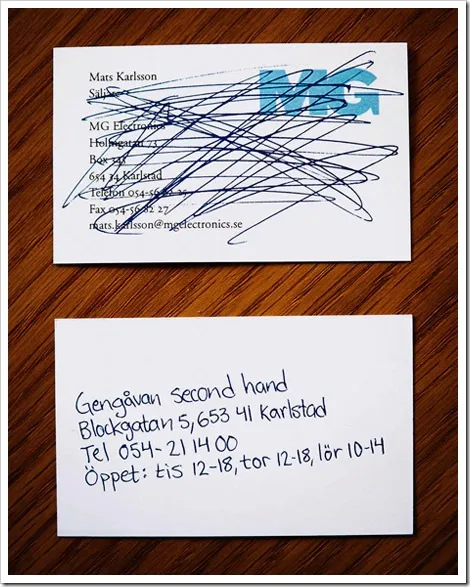 Mats Karlsson
Säljare
MG
MG Electronics
Holmgatan 73
Box 345
654 34 Karlstad
Telefon 054-56 82 25
Fax 054-56 82 27
mats.karlsson@mgelectronics.se
Gengåvan second hand
Blockgatan 5, 653 41 Karlstad
Tel 054-21 14 00
Öppet: tis 12-18, tor 12-18, lör 10-14